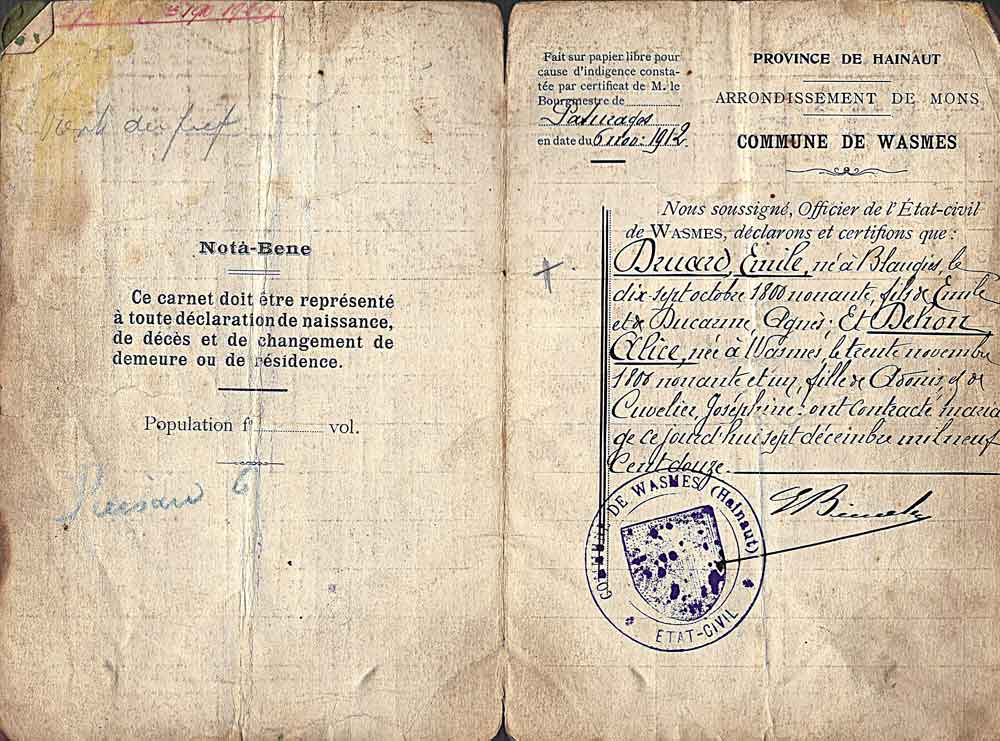 Nota-Bene
Ce carnet doit être représenté
à toute déclaration de naissance,
de décès et de changement de
demeure ou de résidence.
Population f° vol.
Fait sur papier libre pour
cause d'indigence consta-
tée par certificat de M. le
Bourgmestre de
Paturages
en date du 6 nov. 1912.
PROVINCE DE HAINAUT
ARRONDISSEMENT DE MONS
COMMUNE DE WASMES
Nous soussigné, Officier de l'État-civil
de WASMES, déclarons et certifions que :
Druard, Emile, né à Blaugies, le
dix-sept octobre 1800 nonante, fils de Emile
et de Ducanne, Agnès; Et Dehon
Alice, née à Wasmes, le trente novembre
1800 nonante et un, fille de Adonis, & de
Cuvelier, Joséphine: ont contracté maria
ge ce jourd'hui sept décembre mil neuf
cent douze.
COMMUNE DE WASMES (Hainaut)
ETAT-CIVIL